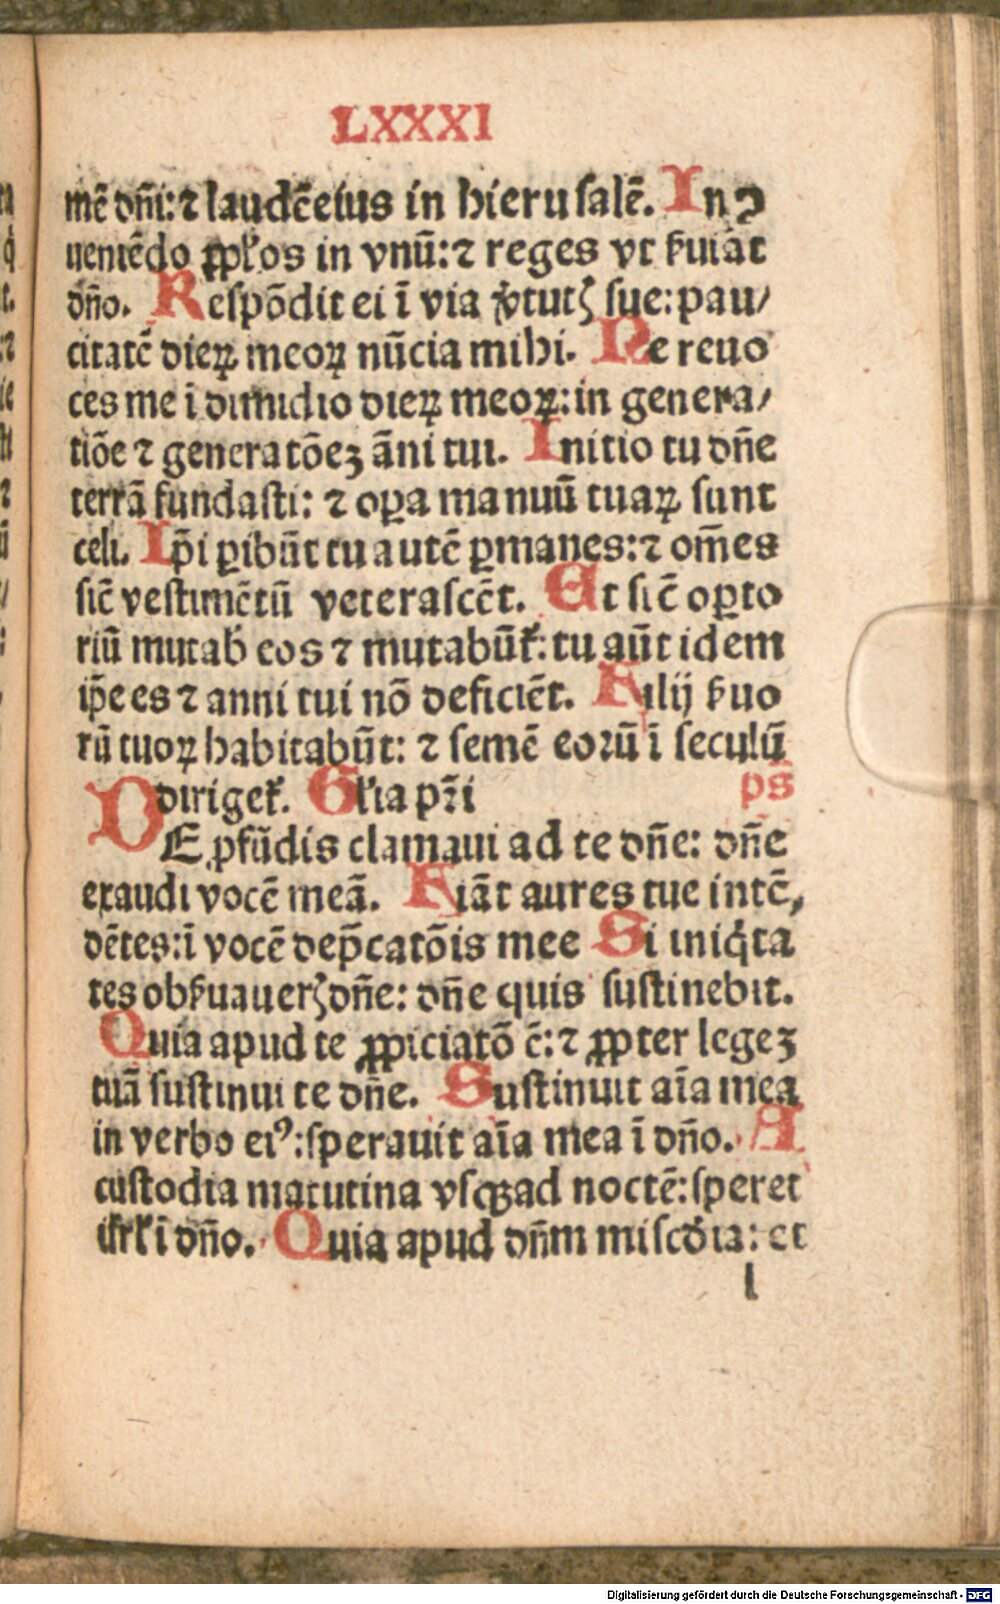 LXXXI
mē dn̄i: ⁊ laudē eius in hierusalē. In ꝯ
ueniēdo pplos in vnū: ⁊ reges vt ẜuiāt
dn̄o. Respōdit ei ī via v̓tutꝭ sue: pau/
citatē dieꝝ meoꝝ nūcia mihi. Ne reuo
ces me ī dimidio dieꝝ meoꝝ: in genera/
tiōe ⁊ generatōeꝫ āni tui. Initio tu dn̄e
terrā fundasti: ⁊ oꝑa manuū tuaꝝ sunt
celi. Ip̄i ꝑibūt tu autē ꝑmanes: ⁊ om̄es
sic̄ vestimētū veterascēt. Et sic̄ oꝑto
riū mutab̄ eos ⁊ mutabūt᷑: tu aūt idem
ip̄e es ⁊ anni tui nō deficiēt. Filij ẜuo
rū tuoꝝ habitabūt: ⁊ semē eoꝛū ī seculū
dirigeť. Gľia pr̄i ps̄
DE ꝓfūdis clamaui ad te dn̄e: dn̄e
exaudi vocē meā. Fiāt aures tue intē,
dētes: ī vocē dep̄catōis mee Si iniq̇ta
tes obẜuauerꝭ dn̄e: dn̄e quis sustinebit.
Quia apud te ꝓpiciatō ē: ⁊ ꝓpter legeꝫ
tuā sustinui te dn̄e. Sustinuit aīa mea
in verbo eiꝰ: sperauit aīa mea ī dn̄o. A
custodia matutina vsqꝫ ad noctē: speret
isrľ ī dn̄o. Quia apud dn̄m miscďia: et
l
Digitalisierung gefördert durch die Deutsche Forschungsgemeinschaft - DFG